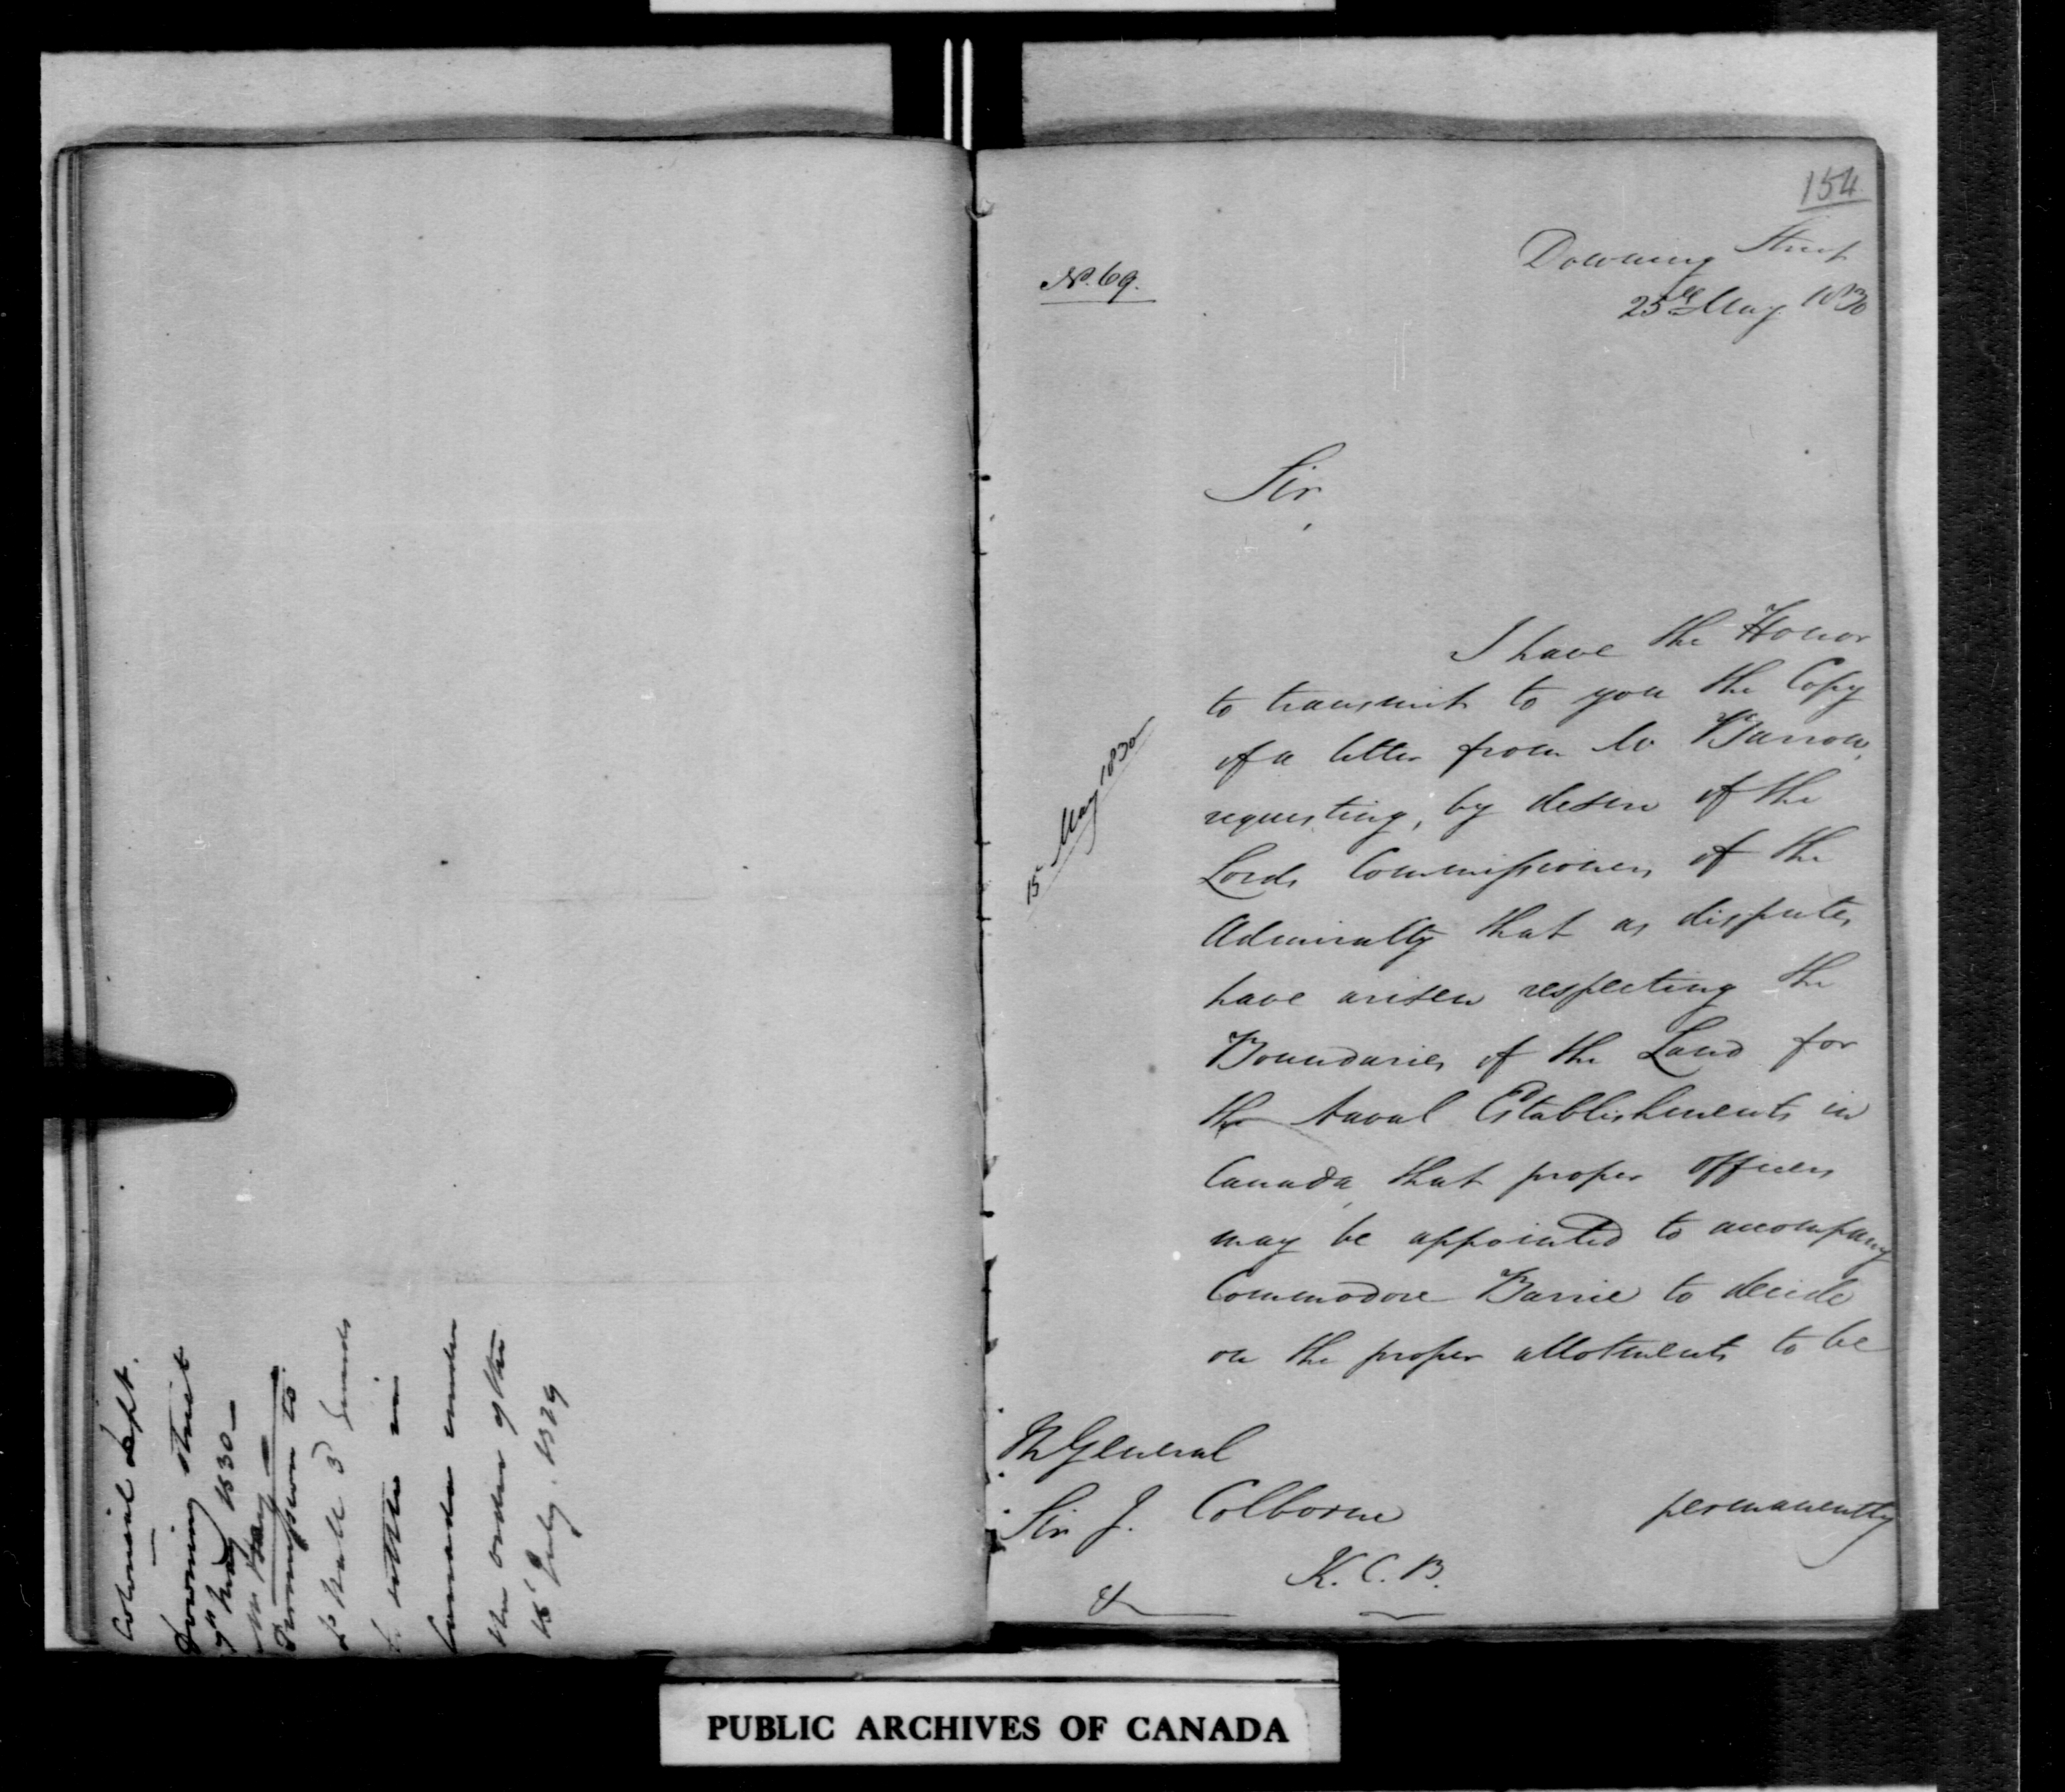 Colonial Dept.
Downing Street
7th May 1830
Mr Hay
Permission to
Lt Hall 3d
to settle in
Canada under
the order of the
16 July. 1829
154
No. 69.
Downing Street
25th May 1830
Sir,
I have the Honor
to transmit to you the Copy
of a letter from Mr Barrow,
15 May 1830
requesting, by desire of the
Lords Commissioners of the
Admiralty that as disputes
have arisen respecting the
Boundaries of the Land for
the Naval Establishments in
Canada, that proper officers
may be appointed to accompany
Commodore Barrie to decide
on the proper allotments to be
M General
Sir J. Colborne
permanently
K. C. B.
&
PUBLIC ARCHIVES OF CANADA